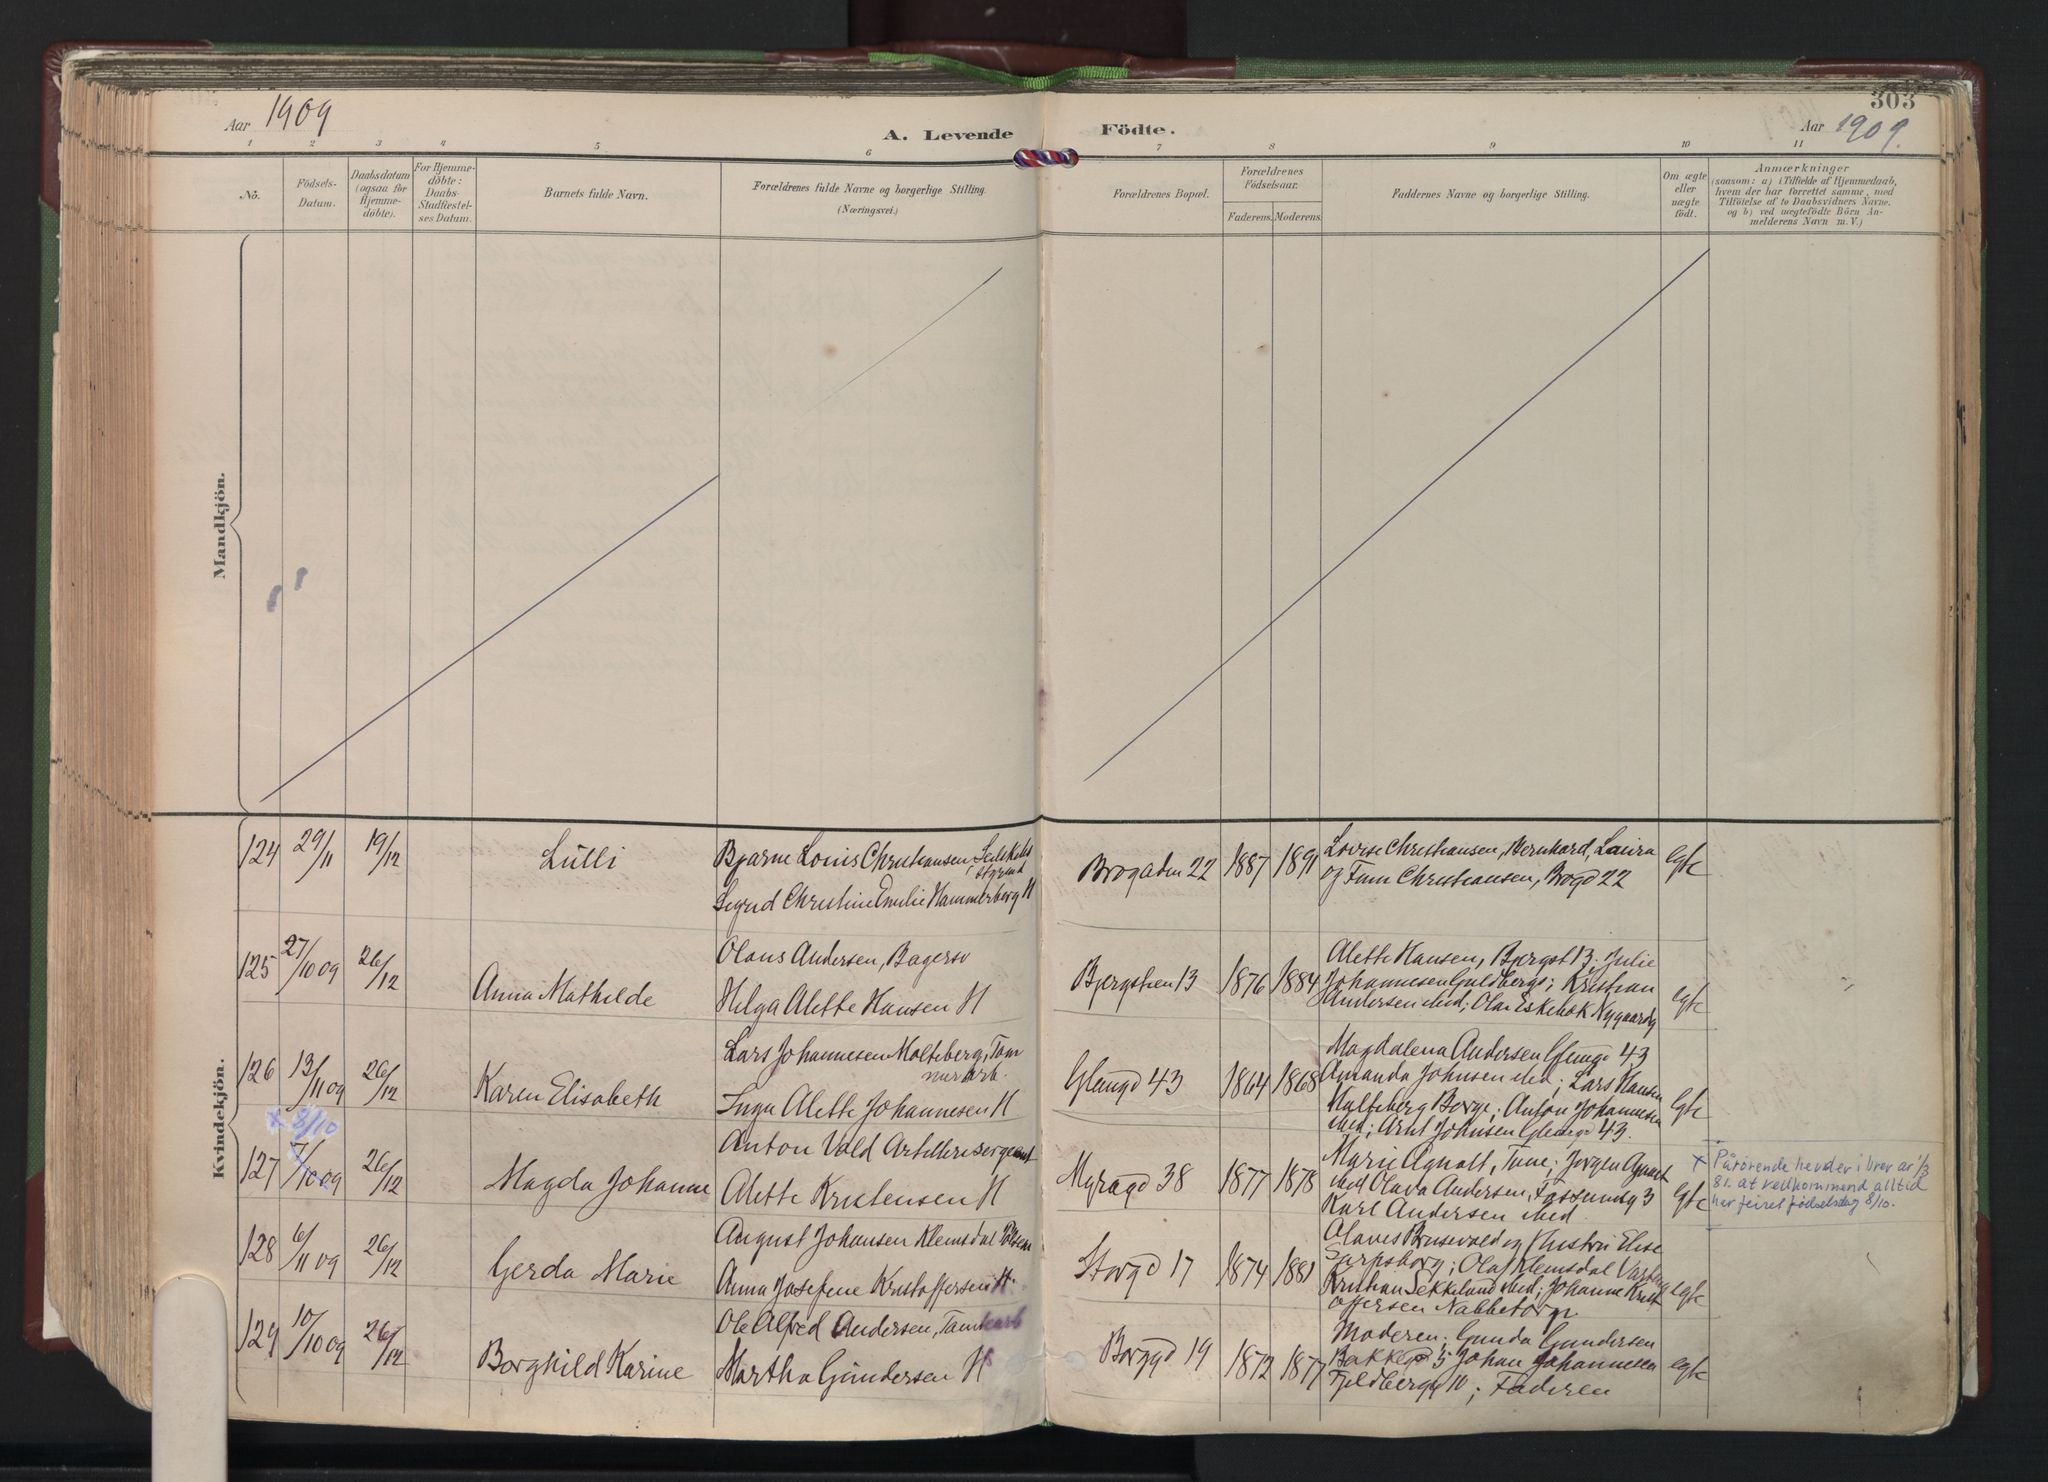 303
Aar 1909
A. Levende Födte.
Aar 1909.
1 2 3 4 5 6 7 8 9 10 11
No.
Födsels-
Datum.
Daabsdatum
(ogsaa för
Hjemme-
döbte).
For Hjemme-
döbte:
Daabs-
Stadfæstel-
ses Datum.
Barnets fulde Navn.
Forældrenes fulde Navne og borgerlige Stilling.
(Næringsvei.)
Forældrenes Bopæl.
Forældrenes
Födselsaar.
Faderens. Moderens.
Faddernes Navne og borgerlige Stilling.
Om ægte
eller
uægte
födt.
Anmærkninger
(saasom: a) i Tilfælde af Hjemmedaab,
hvem der har forrettet samme, med
Tilföielse af to Daabsvidners Navne.
og b) ved uægtefödte Börn An-
melderens Navn m. V.)
Mandkjön.
Kvindekjön.
124 29/11 19/12
Lulli
Bjarne Louis Christiansen,
Sigrid Christine Emilie Hammerborg H
Brogaden 22 1887 1891
Lovise Christiansen, Bernhard, Laura
og Finn Christiansen, Brogd 22
Egte
125 27/10 09 26/12
Anna Mathilde
Olaus Andersen, Bagersv
Helga Alette Hansen H
Bjergstien 13 1876 1884
Alette Hansen, Bjergst 13; Julie
Johannesen Guldbergs; Kristian
Andersen ibid; Olai Eskebæk Nygaardsg
egte
126 13/11 09 26/12
Karen Elisabeth
Lars Johannesen Molteberg, Tøm
merarb.
Inga Alette Johannesen H
Glemgd 43 1864 1868
Magdalena Andersen Glemgd 43
Amanda Johnsen ibid; Lars Hansen
Molteberg Borge; Anton Johannesen
ibid; Arnt Johnsen Glemgd 43.
Egte
x 8/10
127 7/10 09 26/12
Magda Johanne
Anton Vold Artillerisergeant
Alette Kristensen H
Myragd 38 1877 1878
Marie Agnalt, Tune; Jørgen Agnalt
ibid Olava Andersen, Fossumsg 3
Karl Andersen ibid
Egte
x Pårørende hevder i brev av 1/3
81. at vedkommend alltid
har feiret fødselsdag 8/10.
128 6/11 09 26/12
Gerda Marie
August Johansen Klemsdal
Anna Josefine Kristoffersen H.
Storgd 17 1874 1881
Olaves Brusevold og Hustru Elise
Sarpsborg; Olaf Klemsdal
Kristian ibid; Johanne Krist
offersen Nabbetorp
egte
129 10/10 09 26/12
Borghild Karine
Ole Alfred Andersen, Tømrearb
Martha Gundersen H
Borggd 19 1872 1877
Moderen; Gunda Gundersen
Bakkegd 5 Johan Johannesen
Fjeldbergg 10; Faderen
egte